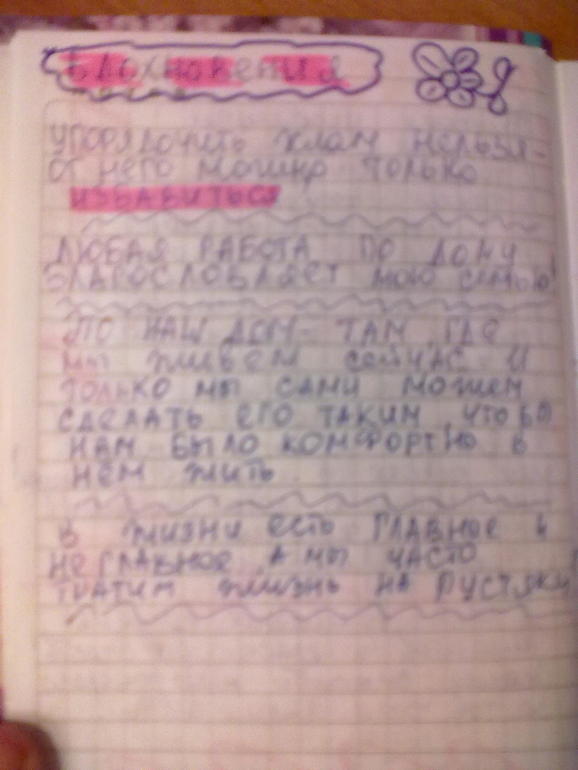 ВДОХНОВЕНИЯ
УПОРЯДОЧИТЬ ХЛАМ НЕЛЬЗЯ -
ОТ НЕГО МОЖНО ТОЛЬКО
ИЗБАВИТЬСЯ
ЛЮБАЯ РАБОТА ПО ДОМУ
БЛАГОСЛОВЛЯЕТ МОЮ СЕМЬЮ!
НАШ ДОМ - ТАМ, ГДЕ
МЫ ЖИВЕМ СЕЙЧАС И
ТОЛЬКО МЫ САМИ МОЖЕМ
СДЕЛАТЬ ЕГО ТАКИМ, ЧТОБЫ
НАМ БЫЛО КОМФОРТНО В
НЕМ ЖИТЬ.
В ЖИЗНИ ЕСТЬ ГЛАВНОЕ И
НЕГЛАВНОЕ, А МЫ ЧАСТО
ТРАТИМ ЖИЗНЬ НА ПУСТЯКИ